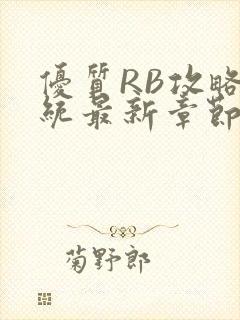 優質RB攻略
統最新章節
菊野郎